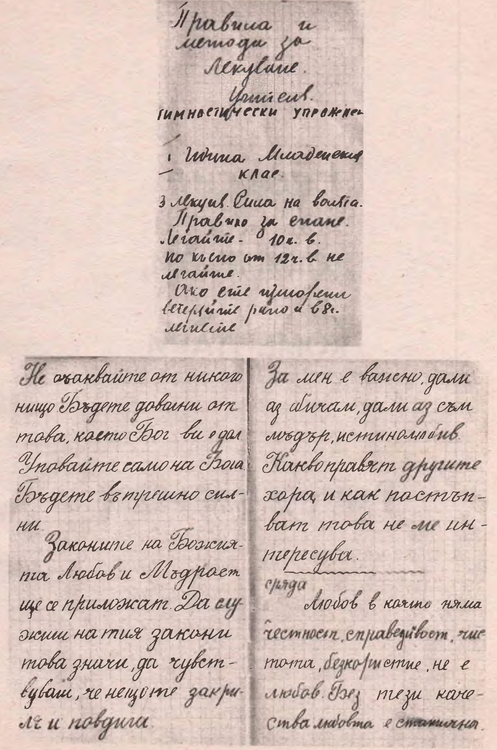 Правила и
методи за
Лекуване.
Учителя.
Гимнастически упражнен
I Година Младежския
клас.
3 лекция. Сила на волята.
Правило за спане.
Лягайте - 10 ч. в.
По късно от 12 ч. в. не
лягайте.
Ако сте приморени
вечеряйте рано и в 8 ч.
легнете
Не очаквайте от никого
нищо Бъдете доволни от
това, което Бог ви е дал
Уповайте само на Бога
Бъдете вътрешно сил-
ни.
Законите на Божия-
та Любов и Мъдрост
ще се приложат. Да слу
жиш на тия закони
това значи, да чувст-
вуваш, че нещо те закри-
ля и повдига.
За мен е важно, дали
аз обичам, дали аз съм
мъдър, истинолюбив.
Какво правят другите
хора, и как постъп-
ват това не ме ин-
тересува.
сряда
Любов в която няма
честност, справедливост, чис
тота, безкористие, не е
любов. Без тези каче-
ства любовта е